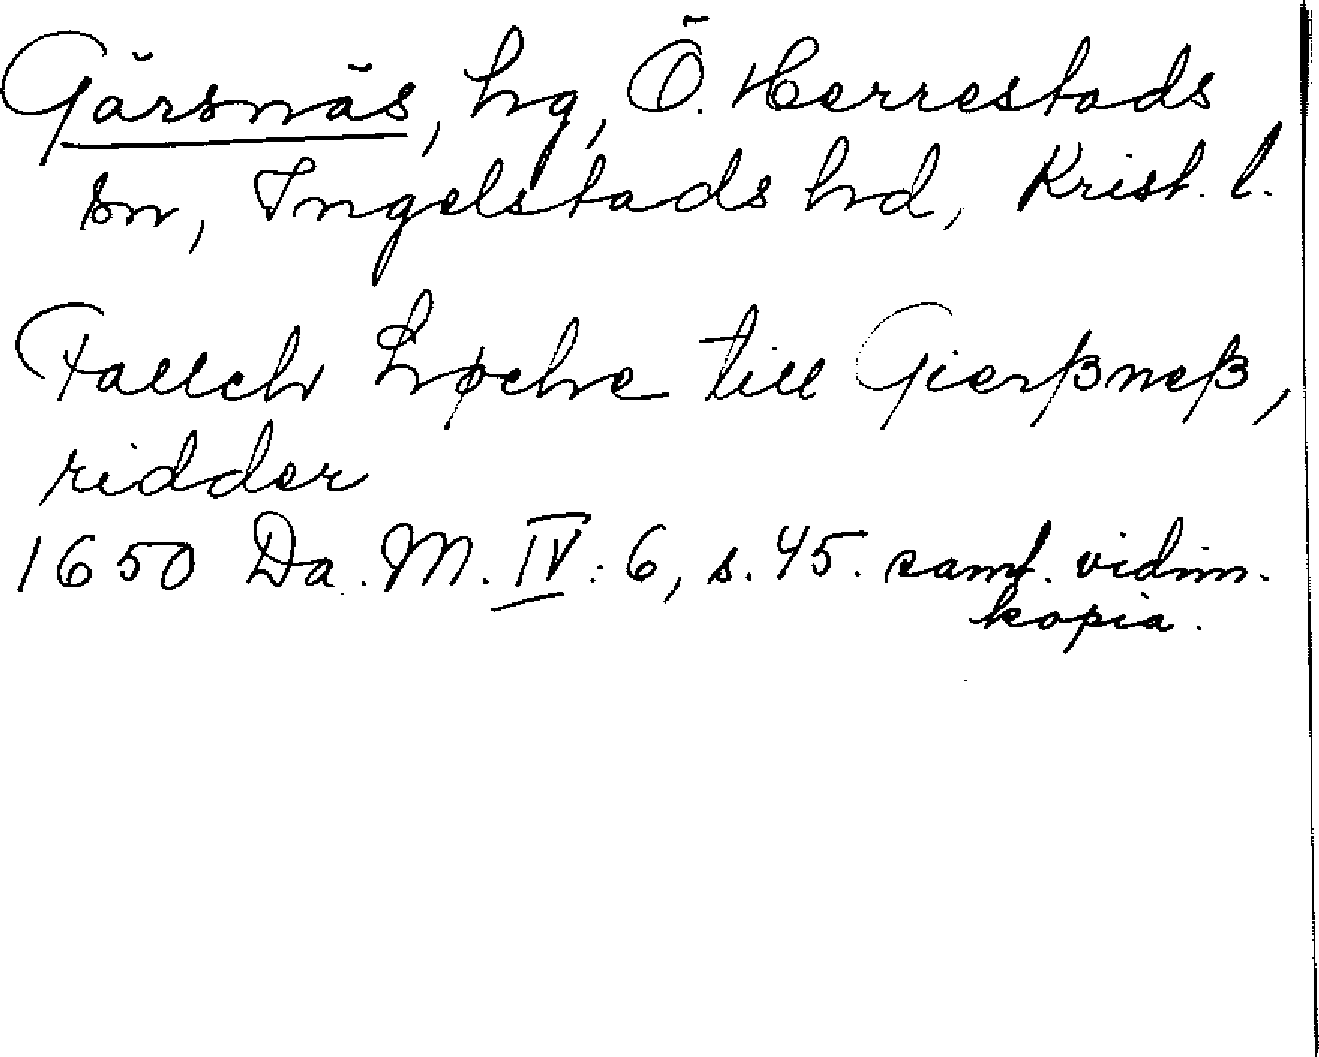 Gärsnäs, hg, Ö. Herrestads
sn, Ingelstads hd, Krist. l.
Fallch Gøche till Gierßneß,
ridder
1650 Da. M. IV: 6, s. 45. samt. vidim.
kopia.